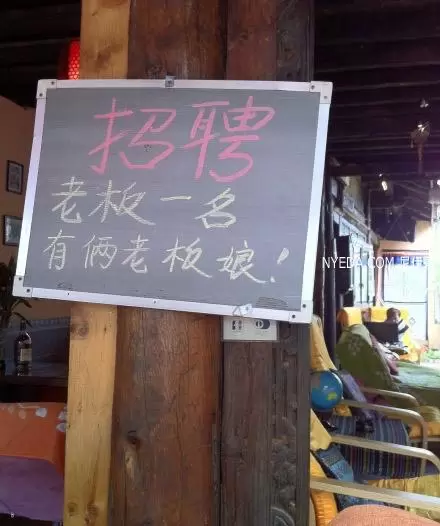 招聘
老板一名
有俩老板娘!
NYEDA.COM